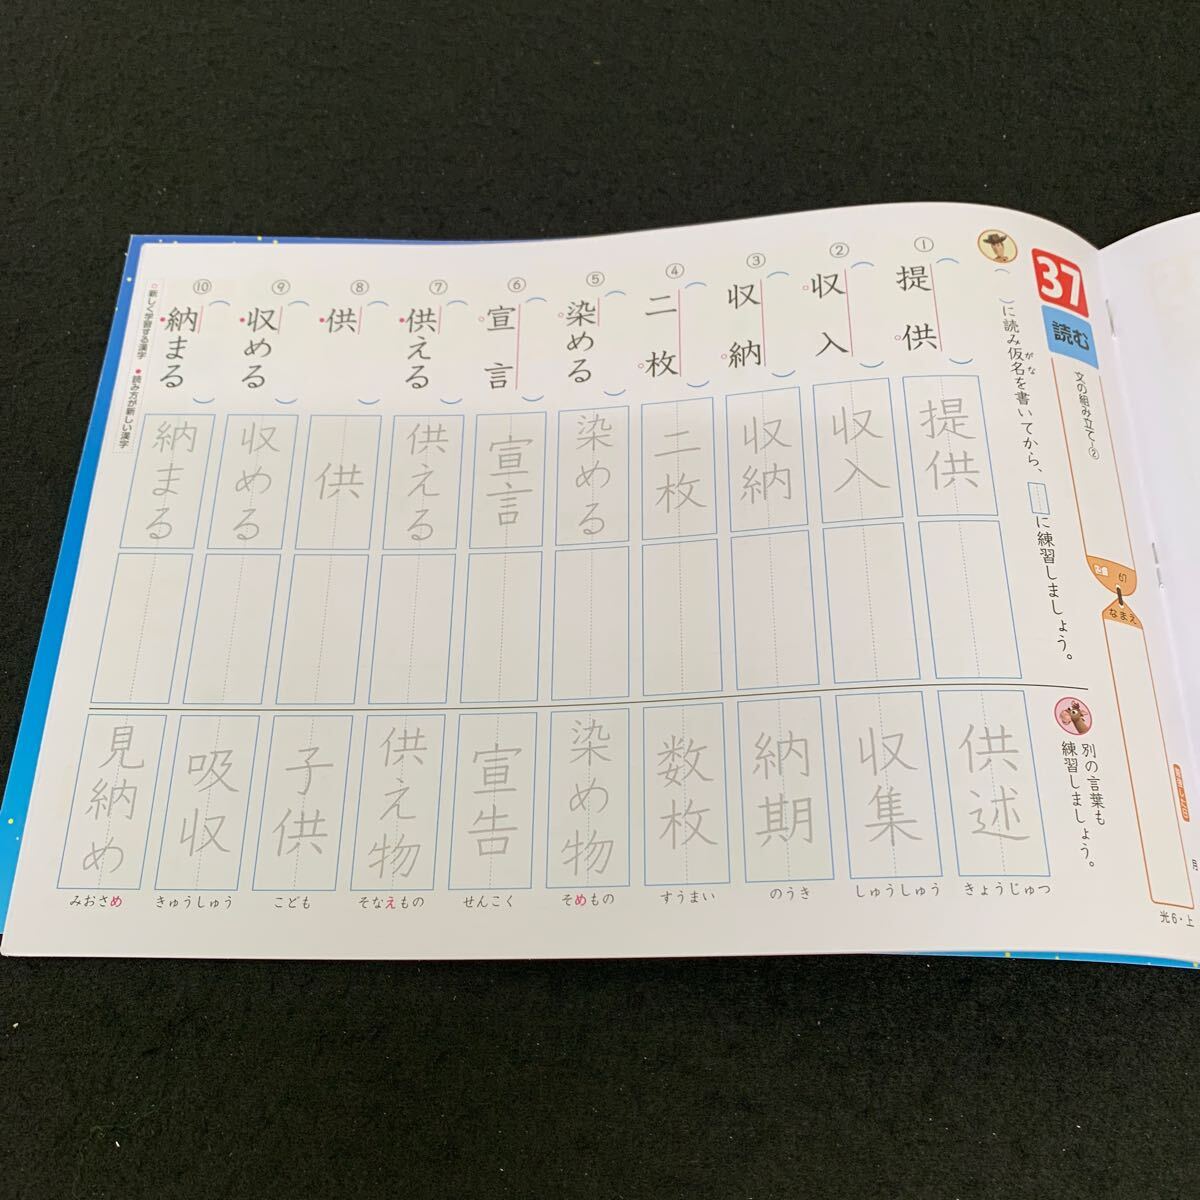 37
読む
文の組み立て-②
67
なまえ
（ ）に読み仮名を書いてから、
がな
に練習しましょう。
別の言葉も
練習しましょう。
① 提供
② 収入
③ 収納
④ 二枚
⑤ 染める
⑥ 宣言
⑦ 供える
⑧ 供
⑨ 収める
⑩ 納まる
○新しく学習する漢字 ●読み方が新しい漢字
提供
収入
収納
二枚
染める
宣言
供える
供
収める
納まる
供述
きょうじゅつ
収集
しゅうしゅう
納期
のうき
数枚
すうまい
染め物
そめもの
宣告
せんこく
供え物
そなえもの
子供
こども
吸収
きゅうしゅう
見納め
みおさめ
月
光6・上